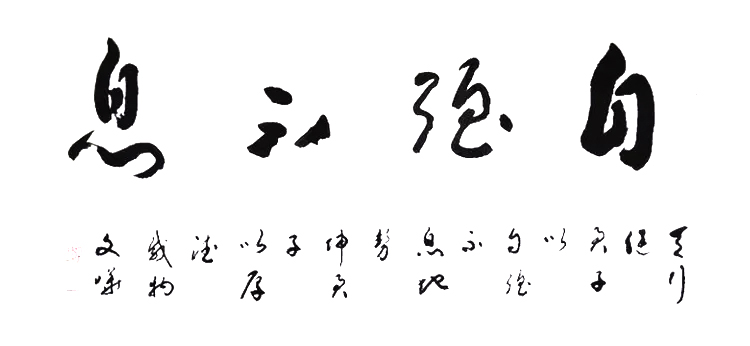 自强不息
天行
健
君子
以
自强
不
息地
势
坤君
子
以厚
德
载物
文